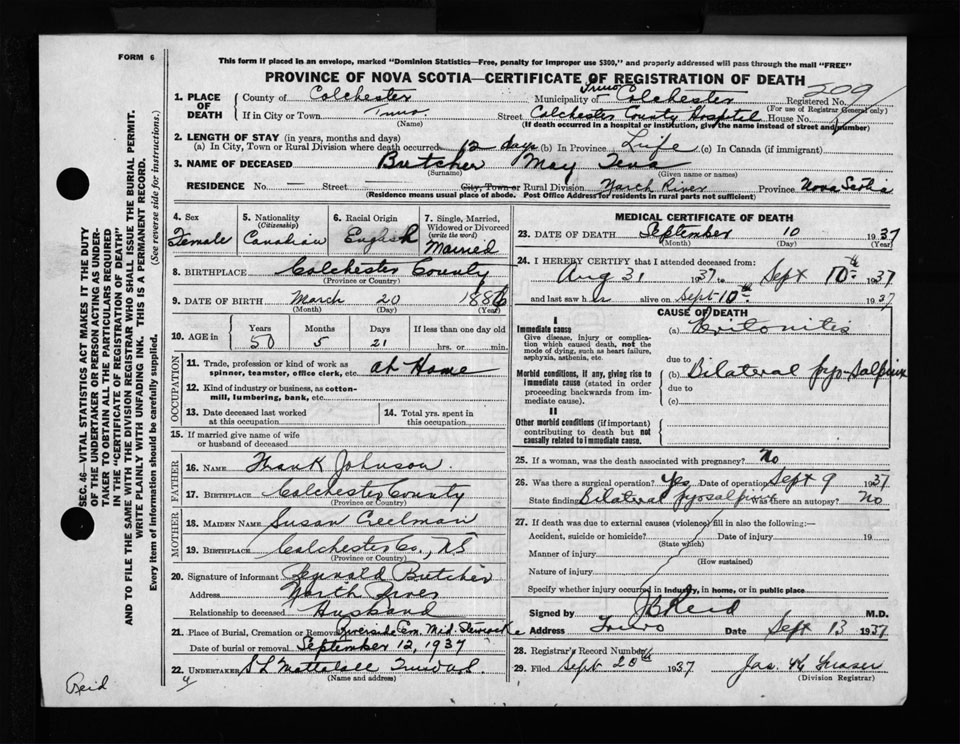 FORM 6
This form if placed in an envelope, marked "Dominion Statistics—Free, penalty for improper use $300," and properly addressed will pass through the mail "FREE"
PROVINCE OF NOVA SCOTIA—CERTIFICATE OF REGISTRATION OF DEATH
1. PLACE OF DEATH
County of Colchester Municipality of Truro Colchester Registered No. 209
(For use of Registrar General only)
If in City or Town Truro Street Colchester County Hospital House No.
(Name) (If death occurred in a hospital or institution, give the name instead of street and number)
2. LENGTH OF STAY (in years, months and days)
(a) In City, Town or Rural Division where death occurred 12 days (b) In Province Life (c) In Canada (if immigrant)
3. NAME OF DECEASED Butcher May
(Surname) (Given name or names)
RESIDENCE No. — Street — City, Town or Rural Division River Province Nova Scotia
(Residence means usual place of abode. Post Office Address for residents in rural parts not sufficient)
4. Sex Female
5. Nationality (Citizenship) Canadian
6. Racial Origin English
7. Single, Married, Widowed or Divorced (write the word) Married
8. BIRTHPLACE Colchester County
(Province or Country)
9. DATE OF BIRTH March 20 1886
(Month) (Day) (Year)
10. AGE in Years 50 Months 5 Days 21 If less than one day old hrs. or min.
OCCUPATION
11. Trade, profession or kind of work as spinner, teamster, office clerk, etc. at Home
12. Kind of industry or business, as cotton-mill, lumbering, bank, etc.
13. Date deceased last worked at this occupation
14. Total yrs. spent in this occupation
15. If married give name of wife or husband of deceased
FATHER
16. NAME Frank Johnson
17. BIRTHPLACE Colchester County
MOTHER
18. MAIDEN NAME Susan Creelman
19. BIRTHPLACE Colchester Co., N.S
(Province or Country)
20. Signature of informant Butcher
Address North River
Relationship to deceased Husband
21. Place of Burial, Cremation or Removal Riverside Cem. Mid Stewiacke
Date of burial or removal September 12, 1937
22. UNDERTAKER Truro N.S.
(Name and address)
MEDICAL CERTIFICATE OF DEATH
23. DATE OF DEATH September 10 1937
(Month) (Day) (Year)
24. I HEREBY CERTIFY that I attended deceased from:
Aug 31 1937 to Sept 10th 1937
and last saw her alive on Sept 10th 1937
CAUSE OF DEATH
I
Immediate cause
Give disease, injury or complication which caused death, not the mode of dying, such as heart failure, asphyxia, asthenia, etc.
(a) Peritonitis
due to
Morbid conditions, if any, giving rise to immediate cause (stated in order proceeding backwards from immediate cause).
(b) Bilateral pyo-salpinx
due to
(c)
II
Other morbid conditions (if important) contributing to death but not causally related to immediate cause.
25. If a woman, was the death associated with pregnancy? No
26. Was there a surgical operation? Yes Date of operation Sept 9 1937
State finding Bilateral pyosalpinx Was there an autopsy? No
27. If death was due to external causes (violence) fill in also the following:—
Accident, suicide or homicide? Date of injury 19
(State which)
Manner of injury
(How sustained)
Nature of injury
Specify whether injury occurred in industry, in home, or in public place
Signed by Reid M.D.
Address Truro Date Sept 13 1937
28. Registrar's Record Number
29. Filed Sept 20th 1937 Jas. Fraser
(Division Registrar)
Reid
SEC. 46—VITAL STATISTICS ACT MAKES IT THE DUTY
OF THE UNDERTAKER OR PERSON ACTING AS UNDER-
TAKER TO OBTAIN ALL THE PARTICULARS REQUIRED
IN THE "CERTIFICATE OF REGISTRATION OF DEATH"
AND TO FILE THE SAME WITH THE DIVISION REGISTRAR WHO SHALL ISSUE THE BURIAL PERMIT.
WRITE PLAINLY WITH UNFADING INK. THIS IS A PERMANENT RECORD.
Every item of information should be carefully supplied. (See reverse side for instructions.)